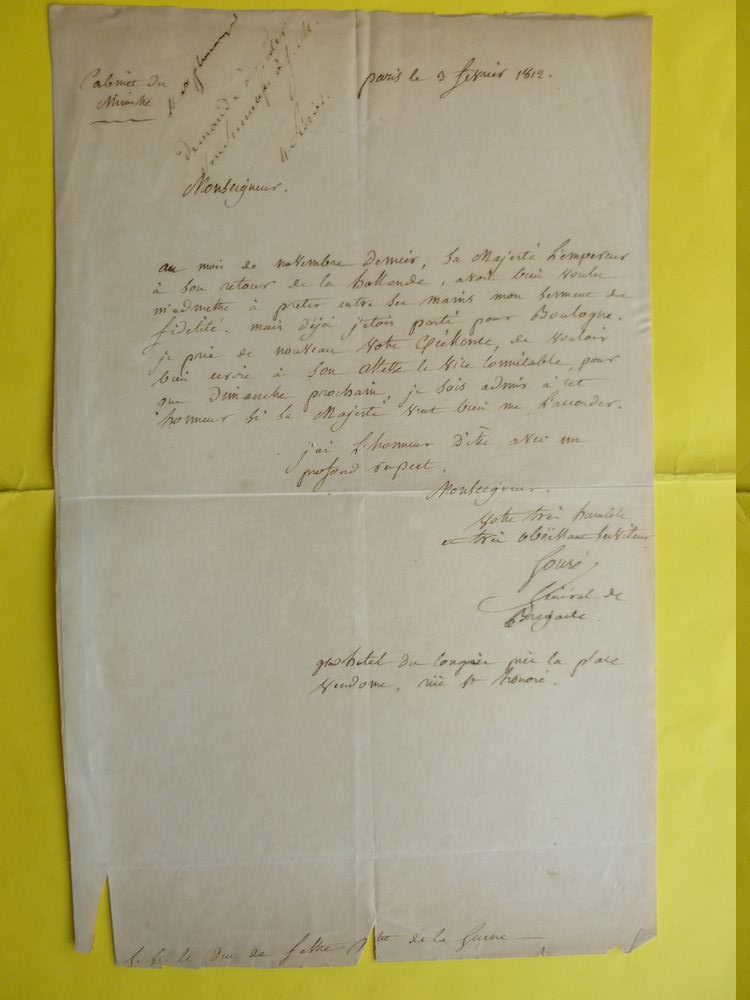 Cabinet du
Ministre
paris le 3 fevrier 1812.
Demande à
son serment à
4 fevrier.
Monseigneur.
au mois de novembre dernier, sa Majesté L'empereur
à son retour de la hollande, avoit bien voulu
m'admettre à preter entre ses mains mon serment de
fidelité. mais déjà j'etois parti pour Boulogne.
je prie de nouveau votre Excellence, de vouloir
bien ecrire à son altesse le vice connétable, pour
que Dimanche prochain, je sois admis à cet
honneur si sa Majesté veut bien me l'accorder.
j'ai L'honneur D'être avec un
profond respect.
Monseigneur.
votre très humble
et très obëissant serviteur
Gouré
Général de
Brigade.
hotel du près la place
vendome, rüe st honoré.
S. E. le Duc de feltre Mtre de la Guerre